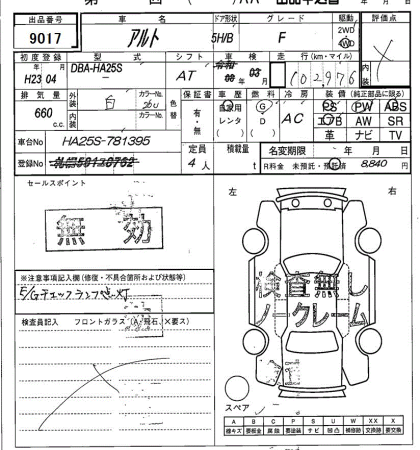 出品番号 車名 ドア形状 グレード 駆動 評価点
9017 アルト 5H/B F 2WD 4WD
初度登録 型式 シフト 車検 走行(km・マイル) 内装
H23 04 DBA-HA25S AT 03 102976
排気量 外装 カラーNo. 色替 カラーNo. 保証書 車歴 燃料 冷房 装備(純正部品に限る)
660 c.c. 白 26U 有・無 自家用 レンタ G D AC PS PW ABS
エアB AW SR
革 ナビ TV
車台No HA25S-781395 定員 積載量 名変期限 年 月 日
登録No 4人 t R料金 未預託・預託済 8,840 円
セールスポイント 左 右
無効
※注意事項記入欄(修復・不具合箇所および状態等)
E/Gチェックランプ点灯
検査員記入 フロントガラス(A、飛石、×要ス)
検査無し
ノークレーム
スペア
A B C P S U W XX X
線キズ 要板金 腐食 要塗装 サビ 凹凸 補修跡 交換跡 要交換